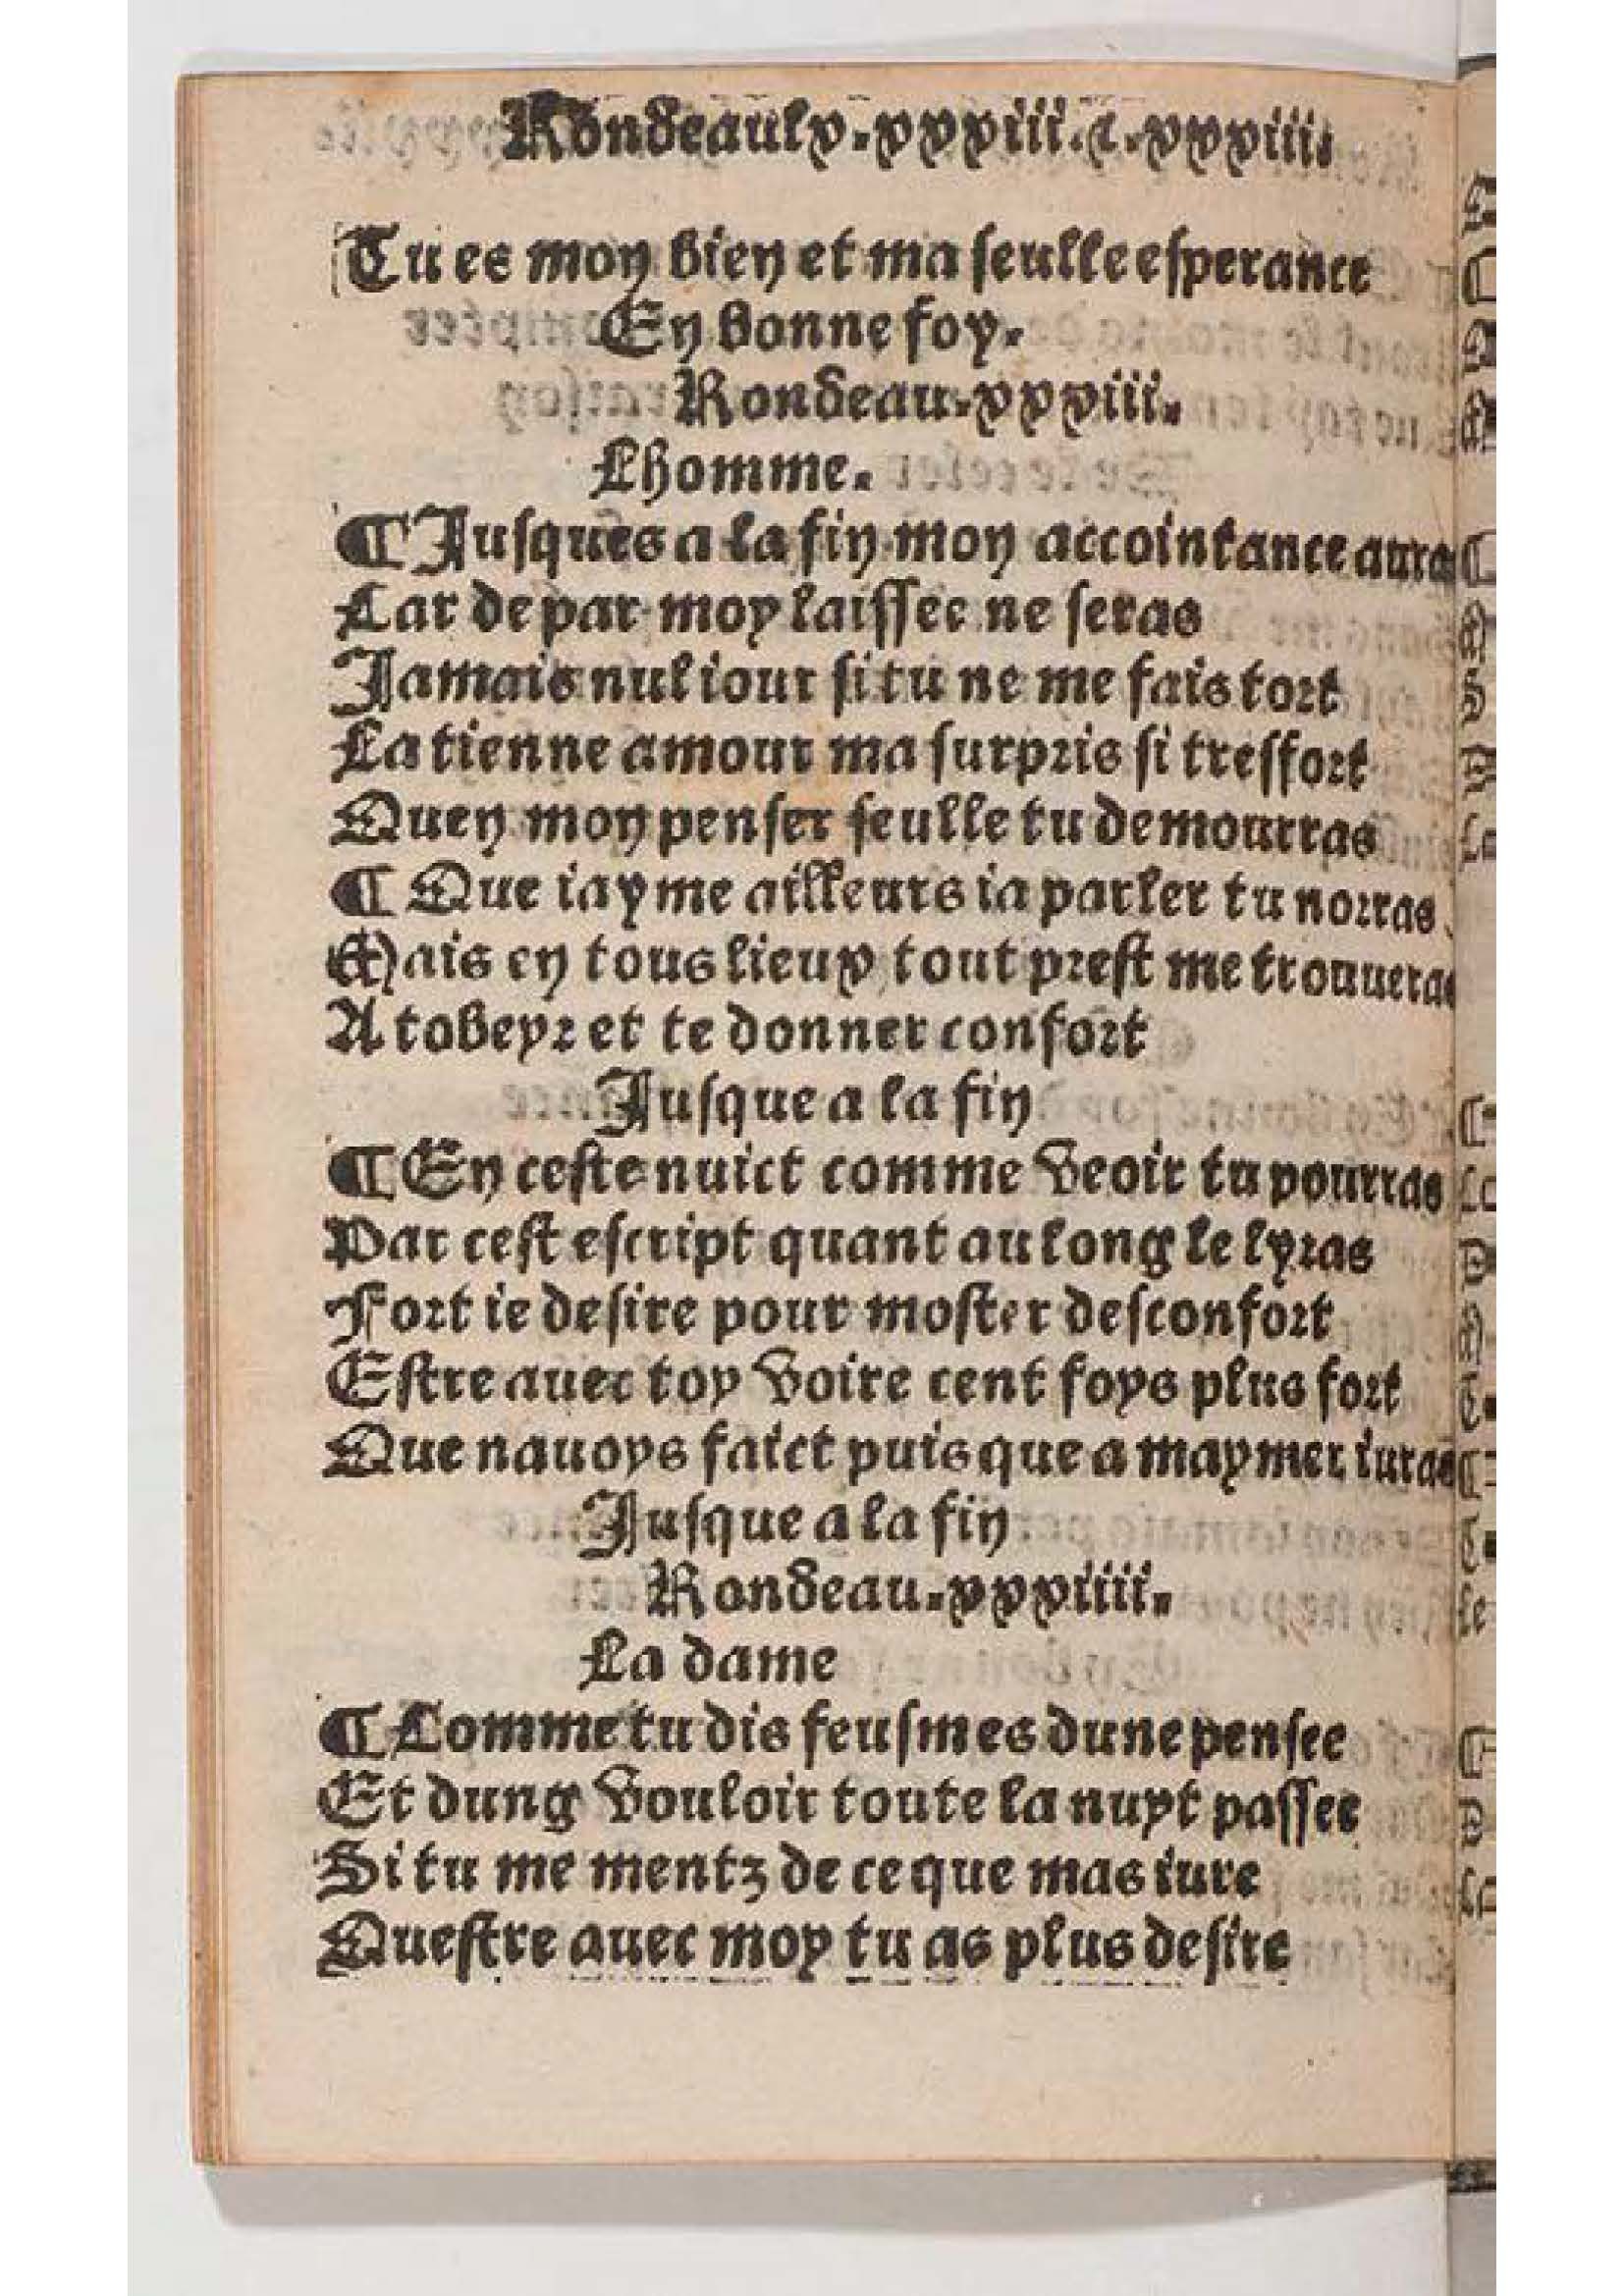 Rondeaulx.xxxiii.⁊.xxxiiii.
Tu es mon bien et ma seulle esperance
En bonne foy.
Rondeau.xxxiii.
Lhomme.
¶ Jusques a la fin mon accointance auras
Car de par moy laissee ne seras
Jamais nul iour si tu ne me fais tort
La tienne amour ma surpris si tresfort
Quen mon penser seulle tu demourras
¶ Que iayme ailleurs ia parler tu norras
Mais en tous lieux tout prest me trouueras
A tobeyr et te donner confort
Jusque a la fin
¶ En ceste nuict comme veoir tu pourras
Par cest escript quant au long le lyras
Fort ie desire pour moster desconfort
Estre auec toy voire cent foys plus fort
Que nauoys faict puis que a maymer iuras
Jusque a la fin
Rondeau.xxxiiii.
La dame
¶ Comme tu dis feusmes dune pensee
Et dung vouloir toute la nuyt passee
Si tu me mentz de ce que mas iure
Questre auec moy tu as plus desire